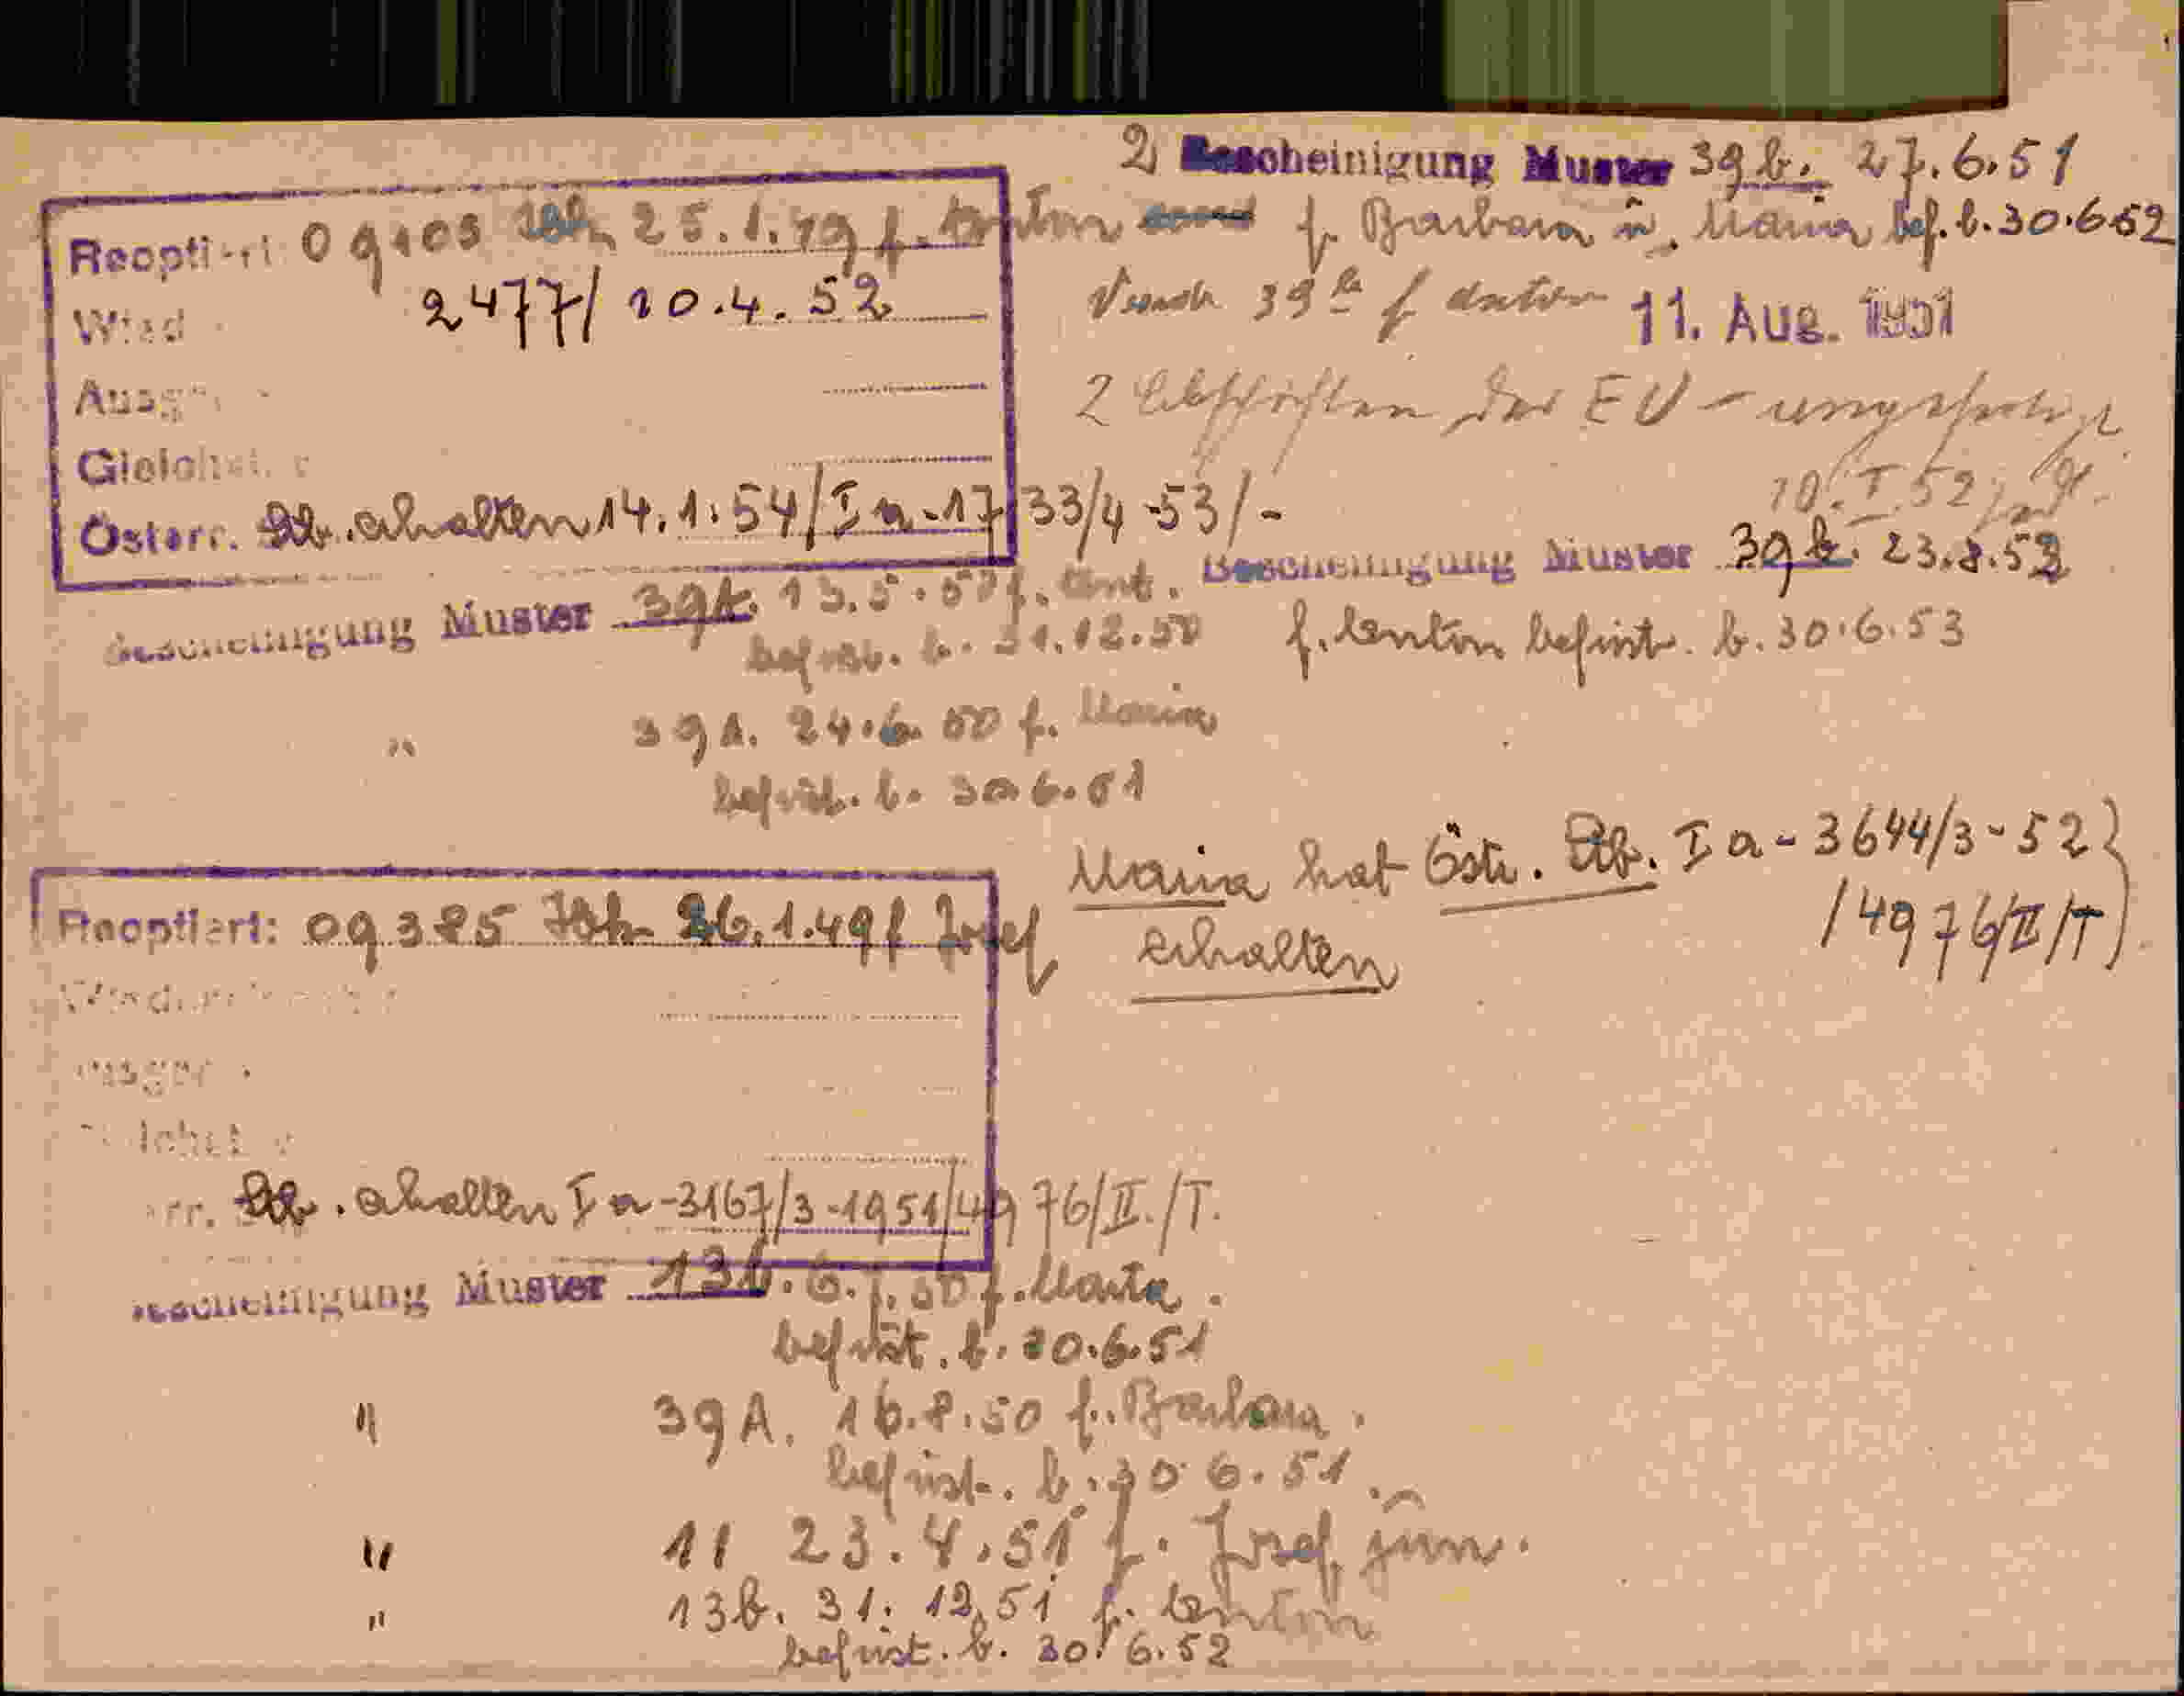 Reoptiert 25.1.49 f. Anton
2477/ 10.4.52
Österr. Stb. erhalten 14.1.54/I a-1733/4-53/-
Bescheinigung Muster 39A. 13.5.50 f. Ant.
befrist. b. 31.12.50
" 39A. 24.6.50 f. Maria
befrist. b. 30.6.51
Reoptiert: 09385 26.1.49 f Josef
Stb. erhalten I a-3167/3-1951/4976/II./T.
Bescheinigung Muster 13b. 6.7.50 f. Maria.
befrist. b. 30.6.51
" 39A. 16.8.50 f. Barbara.
befrist. b. 30.6.51.
" 11 23.4.51 f. Josef jun.
" 13b. 31.12.51 f. Anton
befrist. b. 30.6.52
2 Bescheinigung Muster 39b. 27.6.51
f. Barbara u. Maria bef. b. 30.6.52
39 f Anton 11. Aug. 1951
2 Abschriften der EU -
10.I.52
Bescheinigung Muster 39b. 23.8.52
f. Anton befrist. b. 30.6.53
Maria hat Östr. Stb. I a-3644/3-52}
/4976/II/T}
erhalten